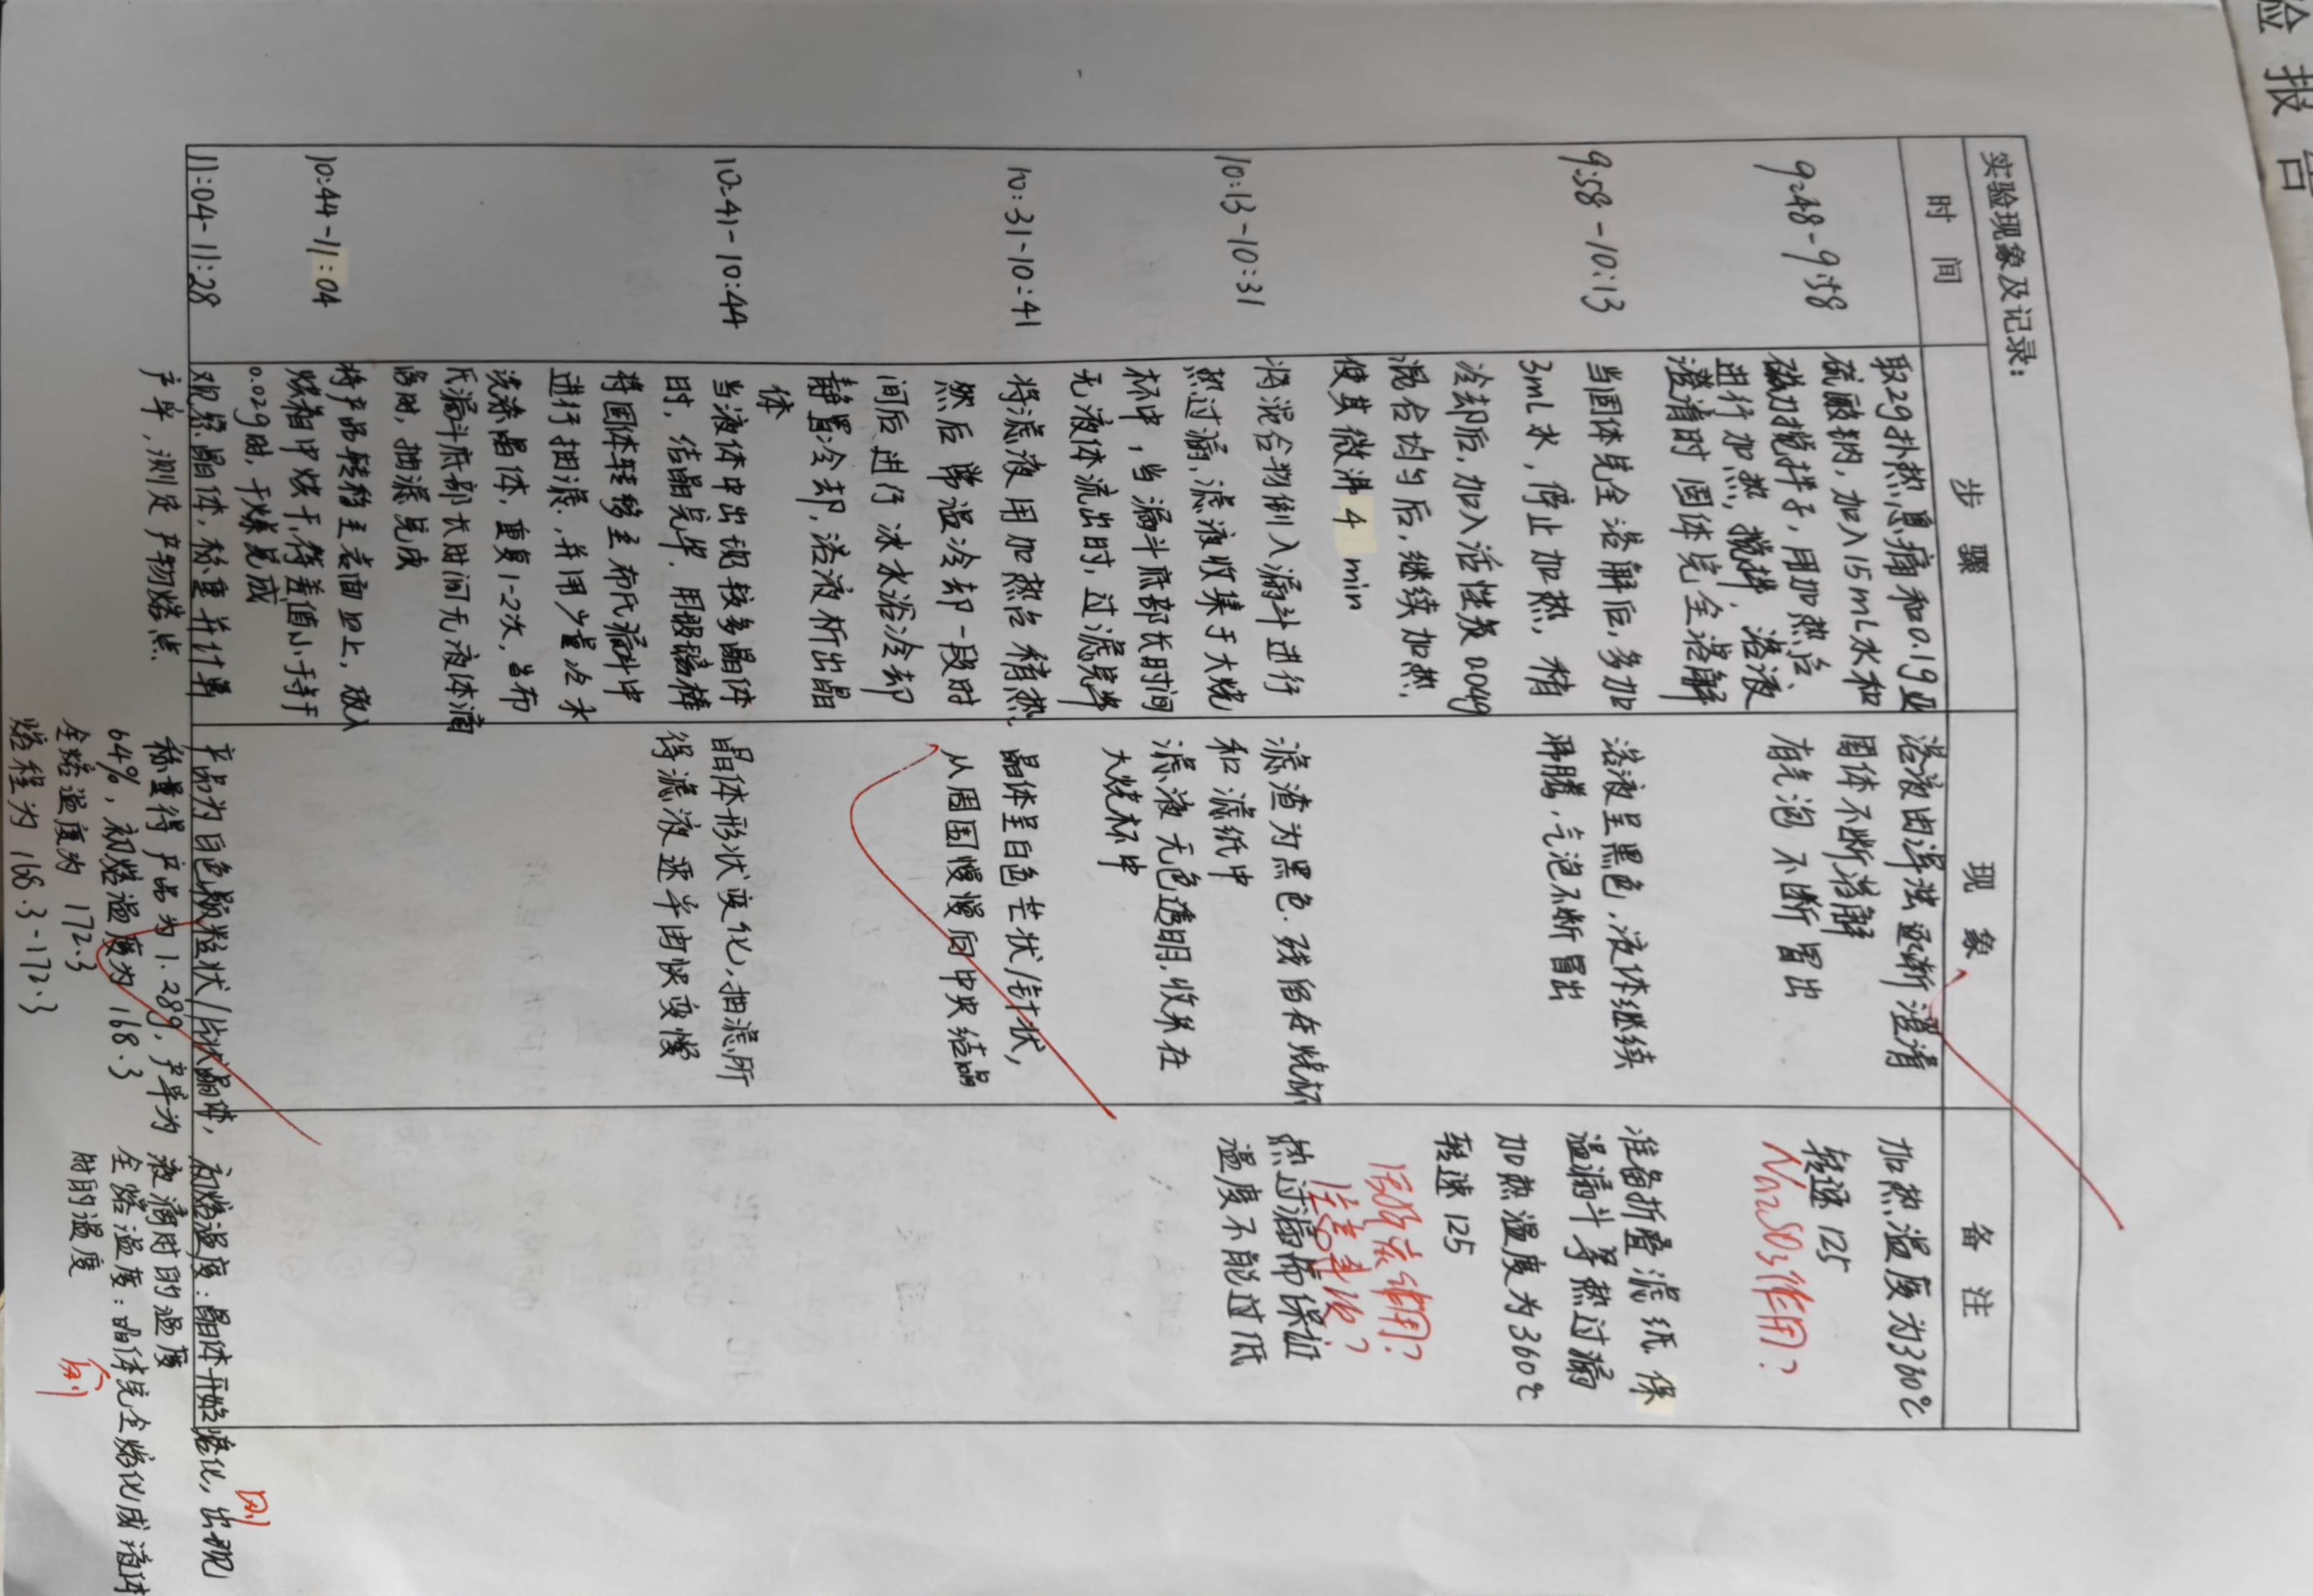 验报告
实验现象及记录:
时 间
步 骤
现 象
备 注
9:48-9:58
取2g扑热息痛和0.1g亚
硫酸钠,加入15mL水和
磁力搅拌子,用加热台
进行加热,搅拌,溶液
澄清时固体完全溶解
溶液由浑浊逐渐澄清
固体不断溶解
有气泡不断冒出
加热温度为360℃
转速125
Na2SO3作用?
9:58-10:13
当固体完全溶解后,多加
3mL水,停止加热,稍
冷却后,加入活性炭0.04g
混合均匀后,继续加热,
使其微沸4 min
溶液呈黑色,液体继续
沸腾,气泡不断冒出
准备折叠滤纸,保
温漏斗等热过滤
加热温度为360℃
转速125
10:13-10:31
将混合物倒入漏斗进行
热过滤,滤液收集于大烧
杯中,当漏斗底部长时间
无液体流出时,过滤完毕
滤渣为黑色,残留在烧杯
和滤纸中
滤液无色透明,收集在
大烧杯中
热过滤需保证
温度不能过低
10:31-10:41
将滤液用加热台稍热,
然后常温冷却一段时
间后进行冰水浴冷却
静置冷却,溶液析出晶
体
晶体呈白色芒状/针状,
从周围慢慢向中央结晶
10:41-10:44
当液体中出现较多晶体
时,结晶完毕,用玻璃棒
将固体转移至布氏漏斗中
进行抽滤,并用少量冷水
洗涤晶体,重复1-2次,当布
氏漏斗底部长时间无液体滴
落时,抽滤完成
晶体形状变化,抽滤所
得滤液速率由快变慢
10:44-11:04
将产品转移至表面皿上,放入
烘箱中烘干,待差值小于等于
0.02g时,干燥完成
11:04-11:28
观察晶体,称重并计算
产率,测定产物熔点
产品为白色颗粒状/片状晶体,
称量得产品为1.28g,产率为
64%,初熔温度为168.3
全熔温度为 172.3
熔程为 168.3-172.3
初熔温度:晶体开始熔化,出现
液滴时的温度
全熔温度:晶体完全熔化成液体
时的温度
刚